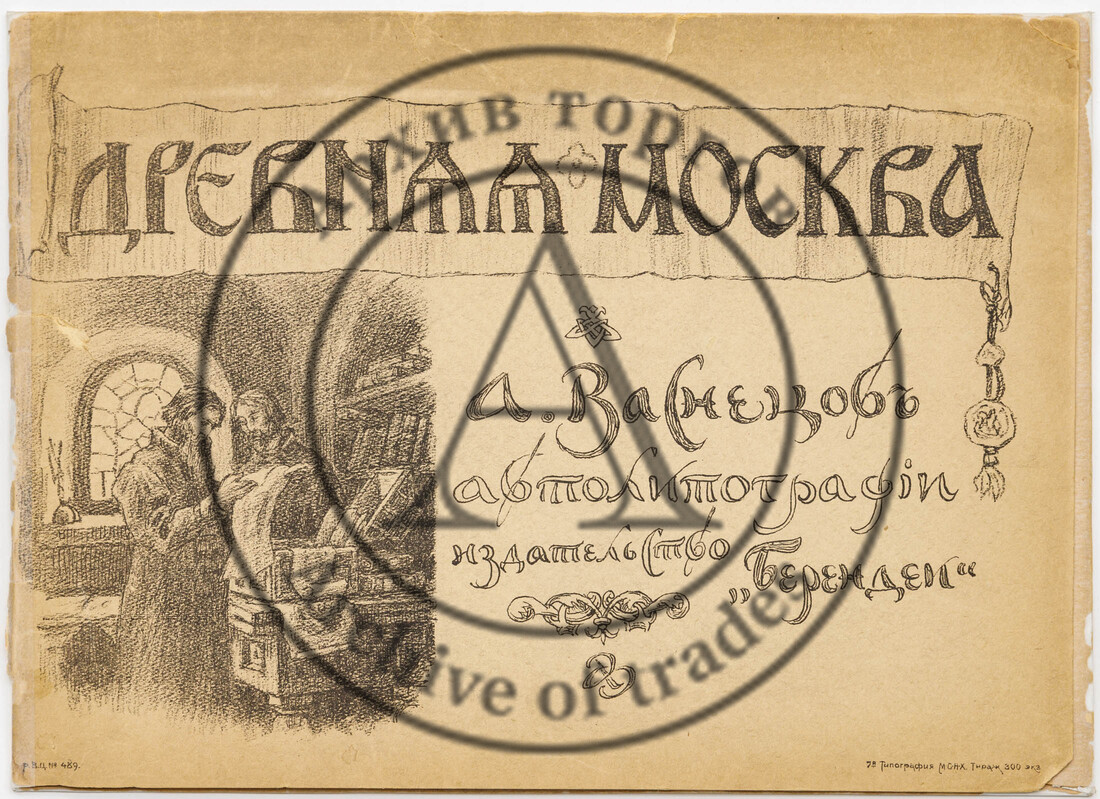 ДРЕВНѦѦ МОСКВА
А. Васнецовъ
автолитографіи
издательство
„Берендеи“
Р.В.Ц. № 489.
7я Типография М.С.Н.Х. Тираж 300 экз
Архив торгов
Archive of trades